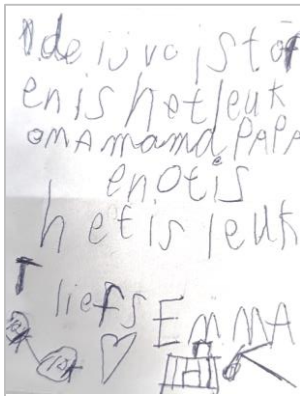 de ijvo is tof
en is het leuk
OMA mama PAPA
en Otis
het is leuk
liefs EMMA